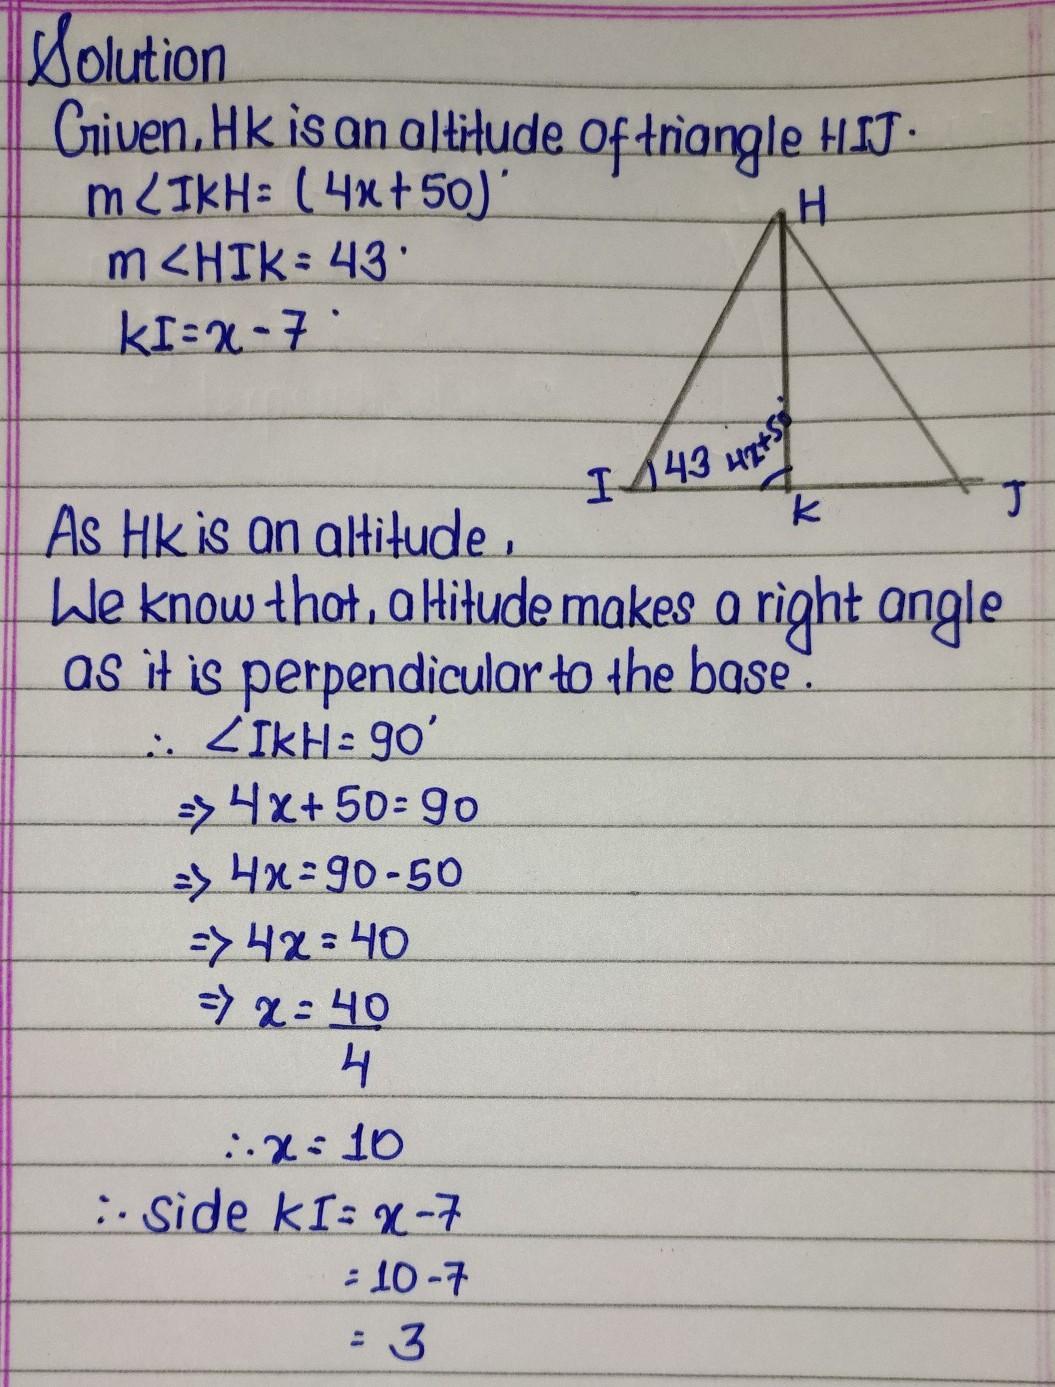 Solution
Given, Hk is an altitude of triangle HIJ.
m∠IkH = (4x+50)°
m<HIk = 43°
kI = x - 7°
H
I
43
4x+50
K
J
As Hk is an altitude,
We know that, altitude makes a right angle
as it is perpendicular to the base.
∴ ∠IkH = 90°
⇒ 4x + 50 = 90
⇒ 4x = 90 - 50
⇒ 4x = 40
⇒ x = 40
4
∴ x = 10
∴ side kI = x - 7
= 10 - 7
= 3